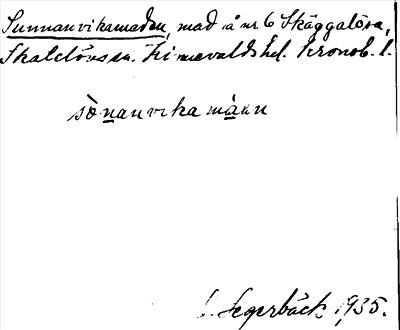 Sunnanvikamaden, mad å nr 6 Skäggalösa,
Skatelövs sn. Kinnevalds hd. Kronob. l.
sònanvika màan
Segerbäck 1935.